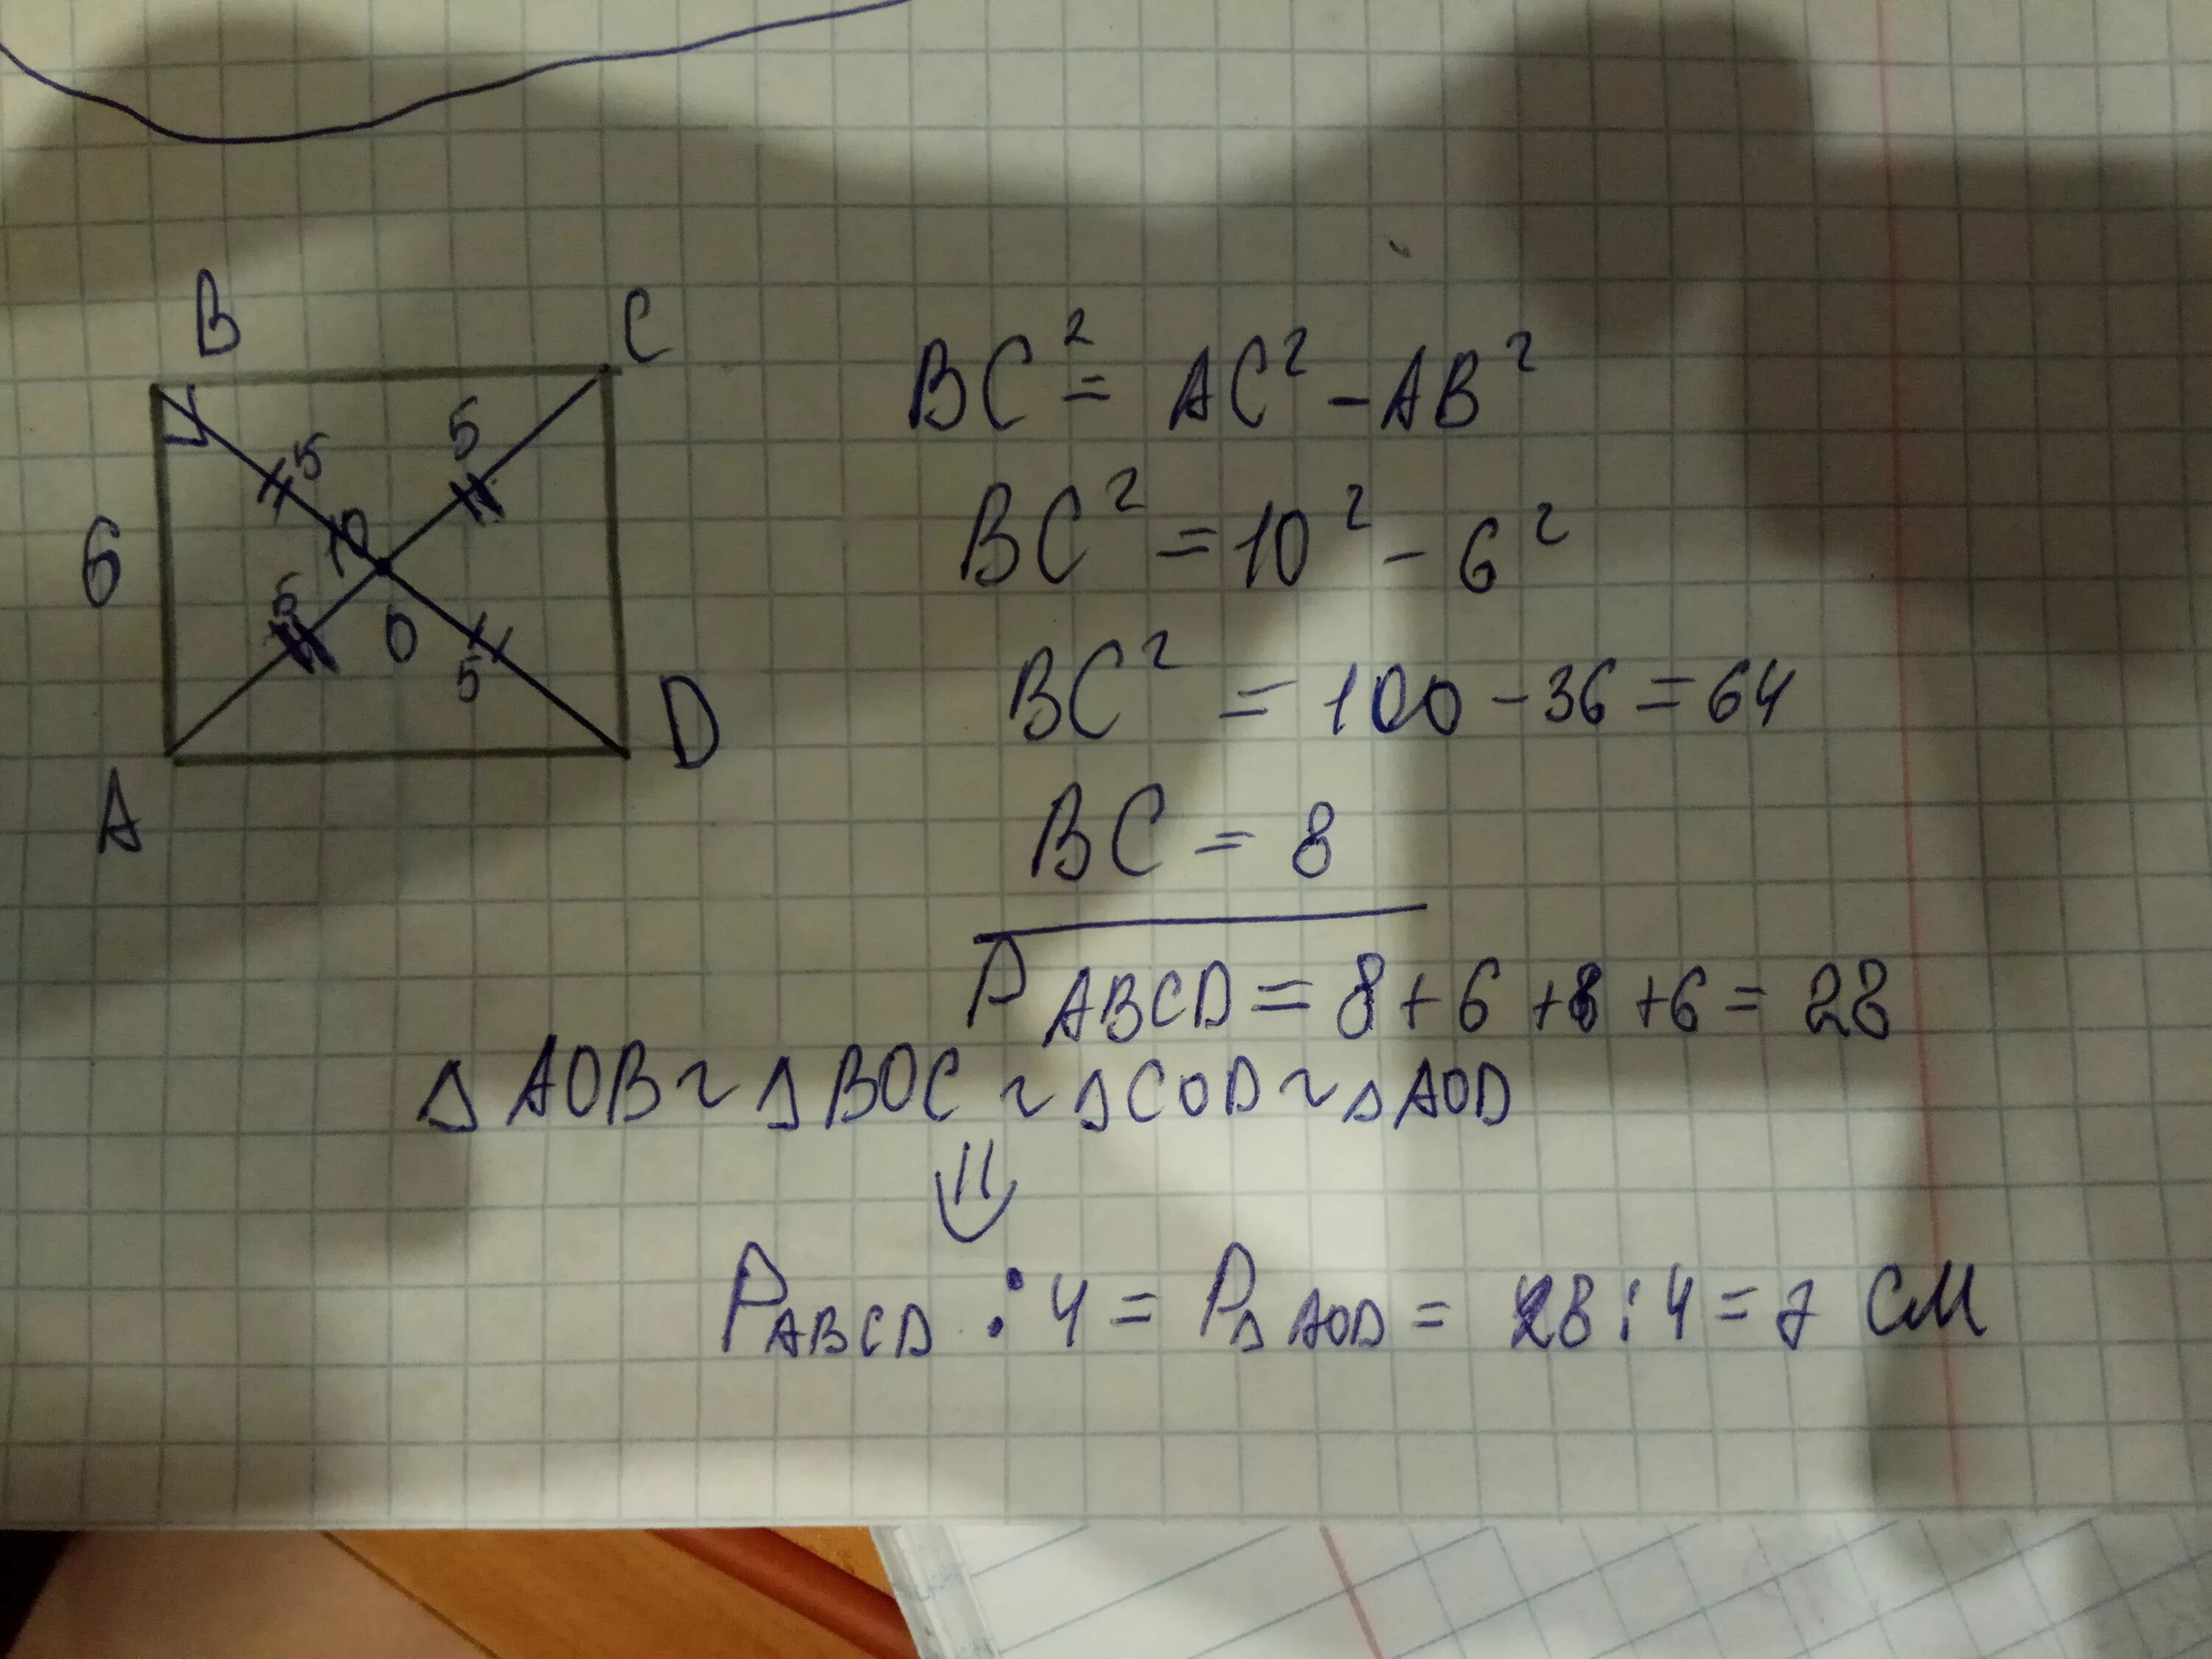 B
C
5
5
10
6
5
O
5
D
A
BC² = AC² - AB²
BC² = 10² - 6²
BC² = 100 - 36 = 64
BC = 8
P ABCD = 8 + 6 + 8 + 6 = 28
△ AOB ~ △ BOC ~ △ COD ~ △ AOD
⇓
P ABCD : 4 = P △ AOD = 28 : 4 = 7 СМ